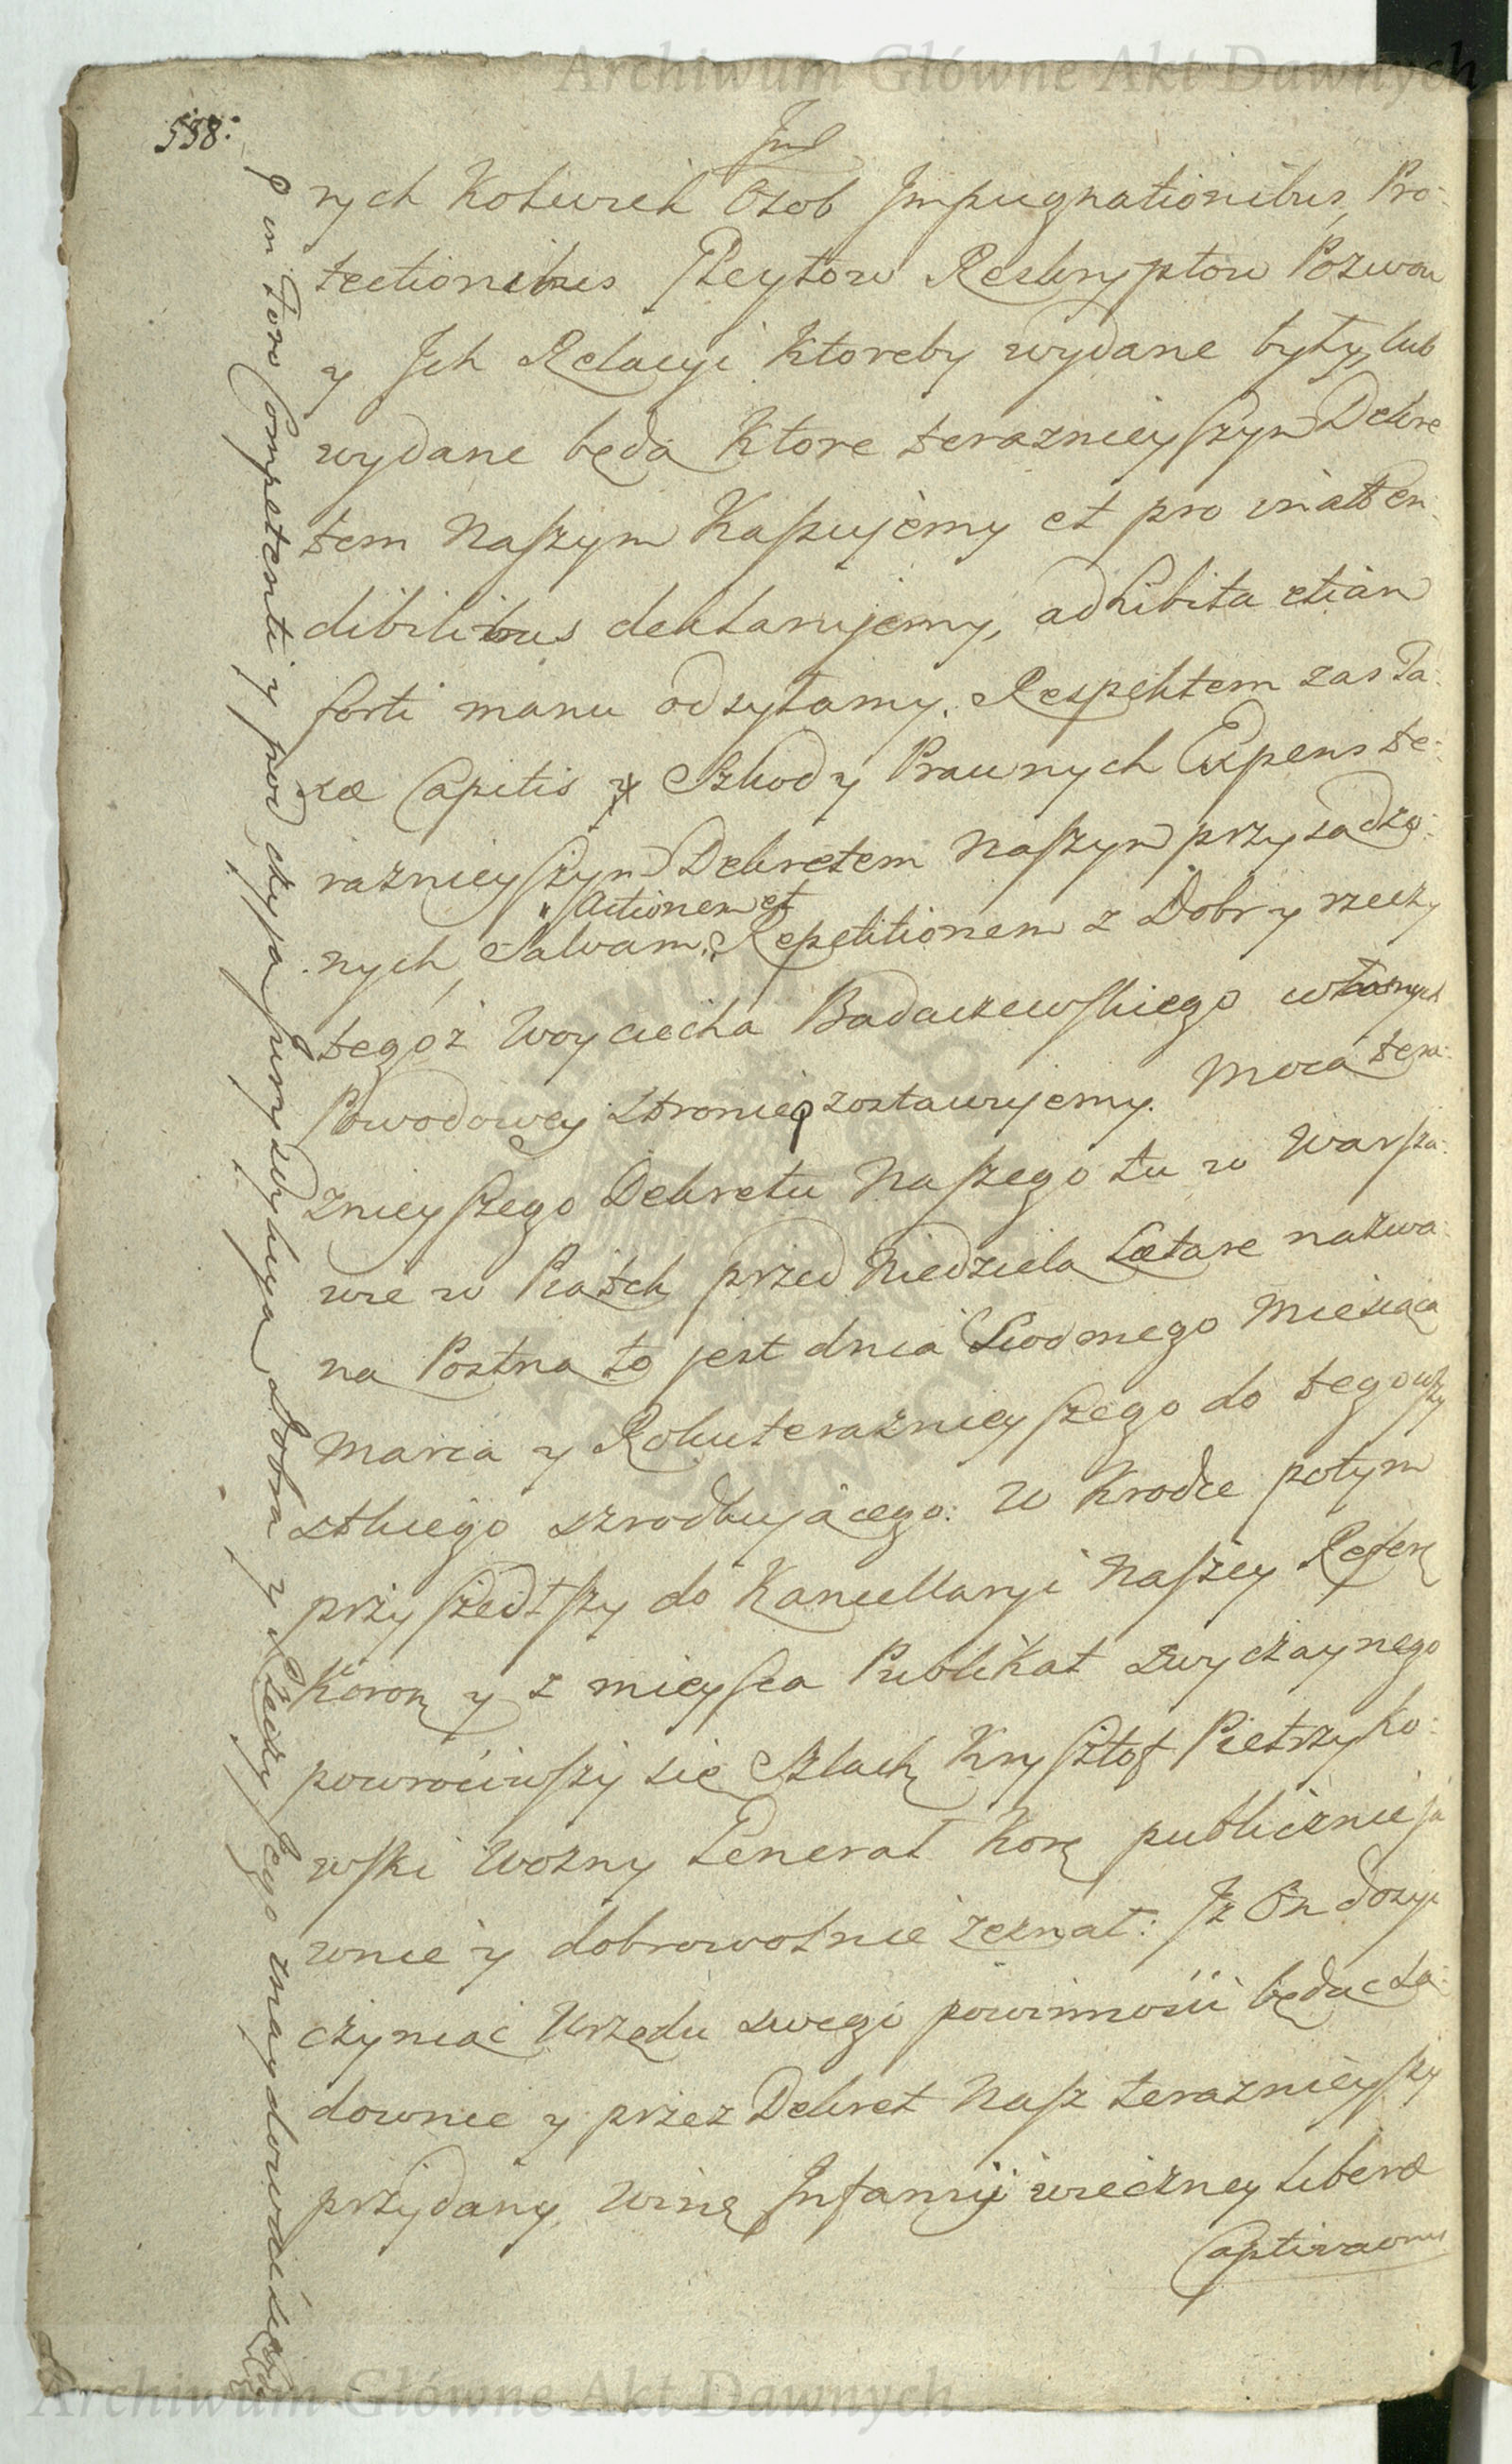 Archiwum Główne Akt Dawnych
538:
Jnd
nych Koturek Osob Jmpugnationibus, Pro:
tectionibus Gleytow Reskryptow Pozwow
y Jch Relacyi Ktoreby wydane były, lub
wydane będą Ktore teraznieyszym Dekre
tem Naszym Kassujemy et pro inatten
dibilibus deklarujemy, adhibita etiam
forti manu odsyłamy. Respektem zas Ta:
xæ Capitis y Szkod y Prawnych Expens te:
raznieyszym Dekretem Naszym przysądzo:
Actionem et
nych, Salvam Repetitionem z Dobr y rzeczy
tegoż Woyciecha Badaczewskiego własnych
Powodowey Stronie zostawujemy. Mocą tera:
znieyszego Dekretu Naszego tu w Warsza:
wie w Piątek przed Niedzielą Lætare nazwa:
ną Postną to jest dnia Siodmego Miesiąca
Marca y Roku teraznieyszego do tego wszy
stkiego szrodkującego: W Krodce potym
przyszedłszy do Kancellaryi Naszey Refer
Koron y z mieysca Publikat zwyczaynego
powrociwszy się Szlach Krysztof Pietrzyko:
wski Wozny Generał Kor publicznie ja
wnie y dobrowolnie zeznał: Jż On dosyc
czyniąc Urzędu swego powinności będąc Są:
downie y przez Dekret Nasz teraznieyszy
przydany Winę Jnfamij wieczney Liberæ
Captivaonis
in Foro Competenti y pod czyją Jurysdykcyą Dobra y Rzeczy Jego znaydować się będą
Archiwum Główne Akt Dawnych